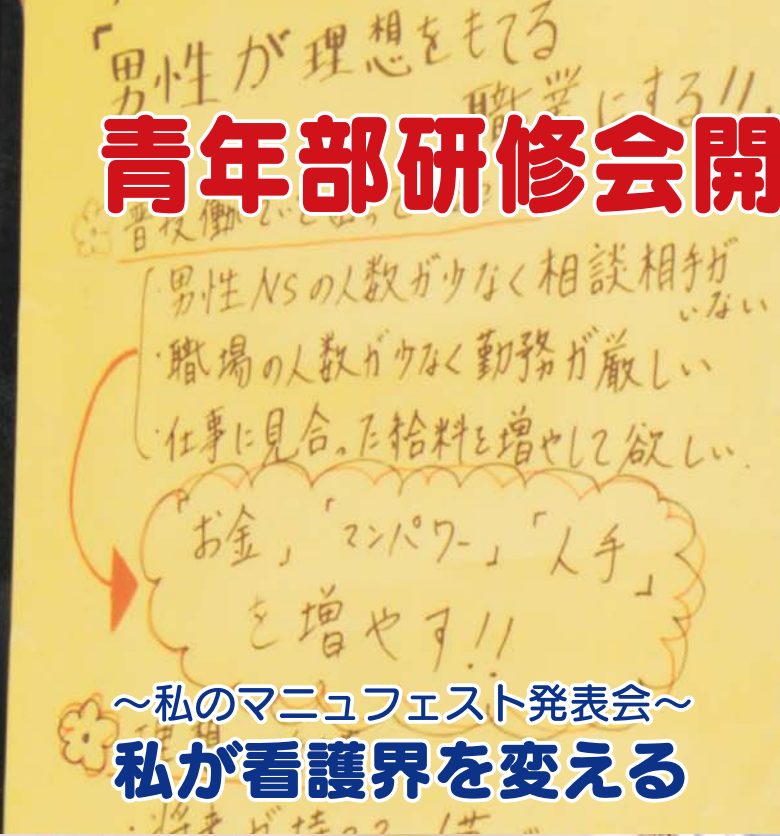 「男性が理想をもてる
職業にする!!
青年部研修会開
普段働いて
・男性NSの人数が少なく相談相手が
いない
・職場の人数が少なく勤務が厳しい
・仕事に見合った給料を増やして欲しい
「お金」「マンパワー」「人手」
を増やす!!
〜私のマニュフェスト発表会〜
私が看護界を変える